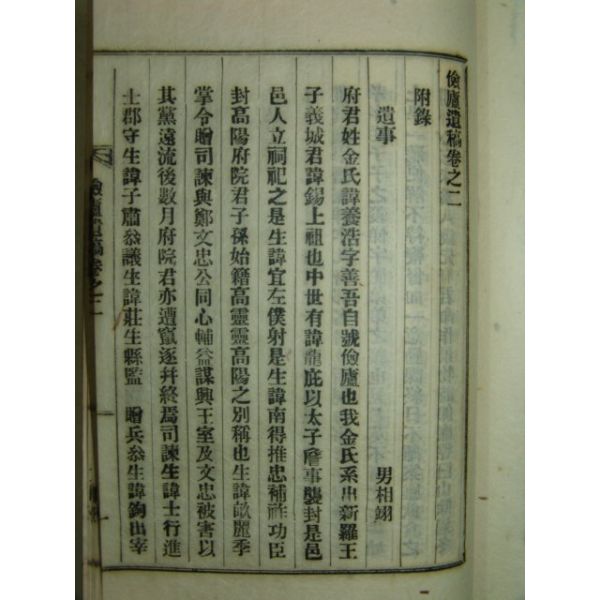 儉廬遺稿卷之二
附錄
遺事 男相翊
府君姓金氏諱養浩字善吾自號儉廬也我金氏系出新羅王
子義城君諱錫上祖也中世有諱龍庇以太子詹事襲封是邑
邑人立祠祀之是生諱宜左僕射是生諱南得推忠補祚功臣
封高陽府院君子孫始籍高靈靈高陽之別稱也生諱㪜麗季
掌令贈司諫與鄭文忠公同心輔益謀興王室及文忠被害以
其黨遠流後數月府院君亦遭竄逐幷終焉司諫生諱士行進
士郡守生諱子肅叅議生諱莊生縣監 贈兵叅生諱鉤出宰
儉廬遺稿卷之二